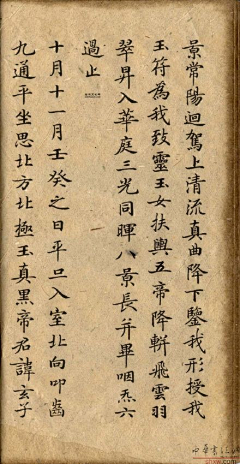 景常陽迴駕上清流真曲降下鑒我形授我
玉符為我致靈玉女扶輿五帝降軿飛雲羽
翠昇入華庭三光同暉八景長并畢咽炁六
過止
十月十一月壬癸之日平旦入室北向叩齒
九通平坐思北方北極玉真黑帝君諱玄子